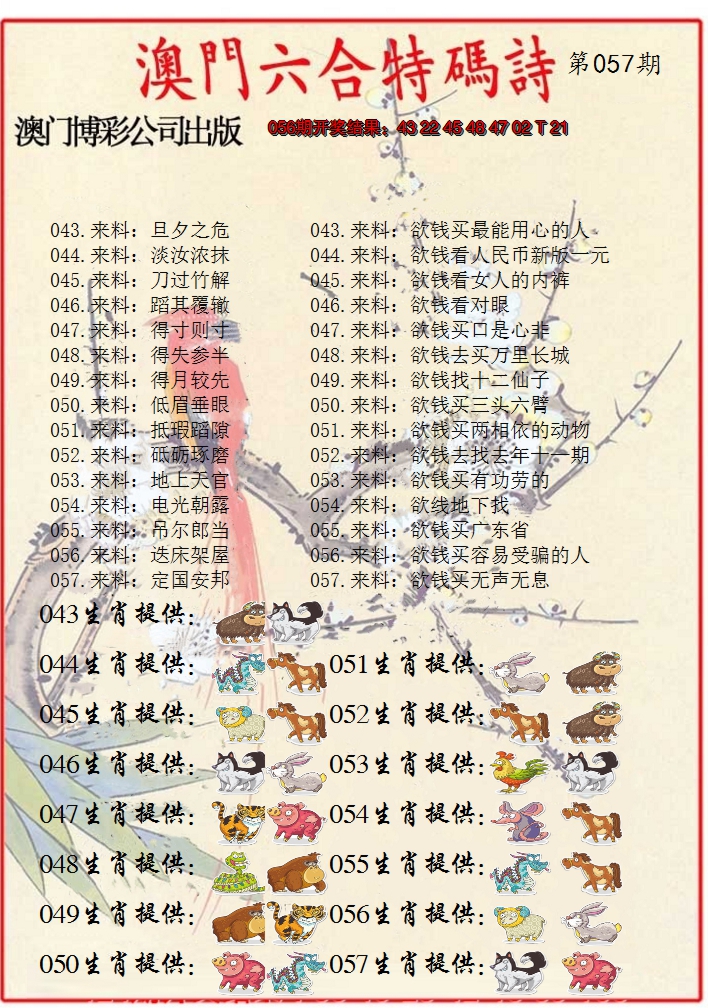 澳門六合特碼詩 第057期
澳门博彩公司出版 056期开奖结果：43 22 45 48 47 02 T 21
043.来料：旦夕之危 043.来料：欲钱买最能用心的人
044.来料：淡汝浓抹 044.来料：欲钱看人民币新版一元
045.来料：刀过竹解 045.来料：欲钱看女人的内裤
046.来料：蹈其覆辙 046.来料：欲钱看对眼
047.来料：得寸则寸 047.来料：欲钱买口是心非
048.来料：得失参半 048.来料：欲钱去买万里长城
049.来料：得月较先 049.来料：欲钱找十二仙子
050.来料：低眉垂眼 050.来料：欲钱买三头六臂
051.来料：抵瑕蹈隙 051.来料：欲钱买两相依的动物
052.来料：砥砺琢磨 052.来料：欲钱去找去年十一期
053.来料：地上天官 053.来料：欲钱买有功劳的
054.来料：电光朝露 054.来料：欲线地下找
055.来料：吊尔郎当 055.来料：欲钱买广东省
056.来料：迭床架屋 056.来料：欲钱买容易受骗的人
057.来料：定国安邦 057.来料：欲钱买无声无息
043生肖提供：
044生肖提供： 051生肖提供：
045生肖提供： 052生肖提供：
046生肖提供： 053生肖提供：
047生肖提供： 054生肖提供：
048生肖提供： 055生肖提供：
049生肖提供： 056生肖提供：
050生肖提供： 057生肖提供：